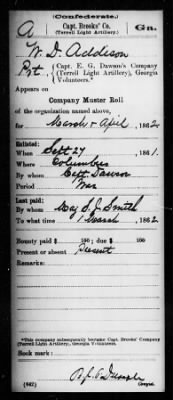 (Confederate.)
A
Capt. Brooks' Co.
(Terrell Light Artillery).
Ga.
W. D. Addison
Pvt., Capt. E. G. Dawson's Company
(Terrell Light Artillery), Georgia
Volunteers.*
Appears on
Company Muster Roll
of the organization named above,
for March & April, 1862.
Enlisted:
When Sept 27, 1861.
Where Columbus
By whom Capt. Dawson
Period War
Last paid:
By whom Maj S. J. Smith
To what time 1 March, 1862.
Bounty paid $ 100; due $ 100
Present or absent Present
Remarks:
*This company subsequently became Capt. Brooks' Company
(Terrell Light Artillery), Georgia Volunteers.
Book mark:
(642)
Copyist.